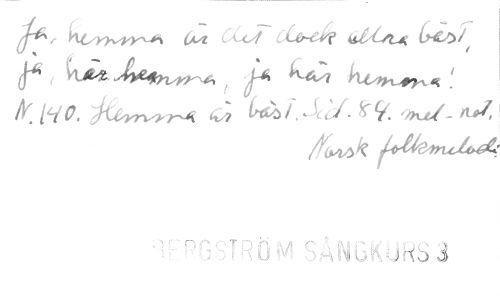 Ja, hemma är det dock allra bäst,
ja, här hemma, ja här hemma!
N. 140. Hemma är bäst. Sid. 84. mel-not.
Norsk folkmelodi
BERGSTRÖM SÅNGKURS 3